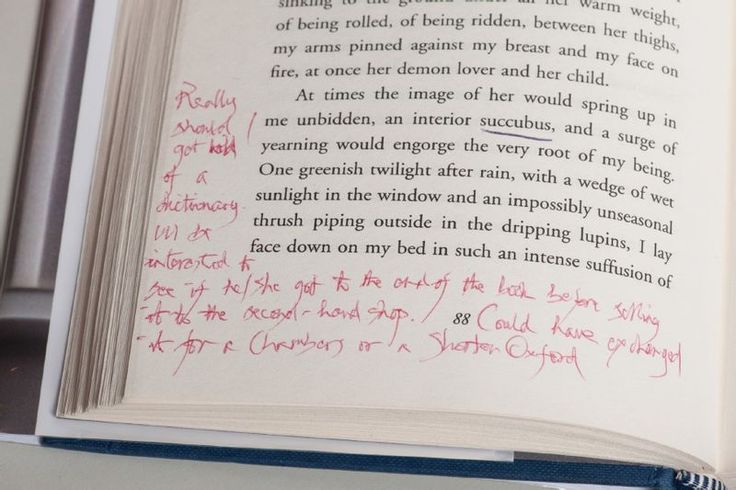 sinking to the ground under all her warm weight,
of being rolled, of being ridden, between her thighs,
my arms pinned against my breast and my face on
fire, at once her demon lover and her child.
At times the image of her would spring up in
me unbidden, an interior succubus, and a surge of
yearning would engorge the very root of my being.
One greenish twilight after rain, with a wedge of wet
sunlight in the window and an impossibly unseasonal
thrush piping outside in the dripping lupins, I lay
face down on my bed in such an intense suffusion of
88
Really
should
got
of a
dictionary.
I'll be
interested to
see if he/she got to the end of the book before selling
it to the second-hand shop. / Could have exchanged
it for a Chambers or a Shorter Oxford